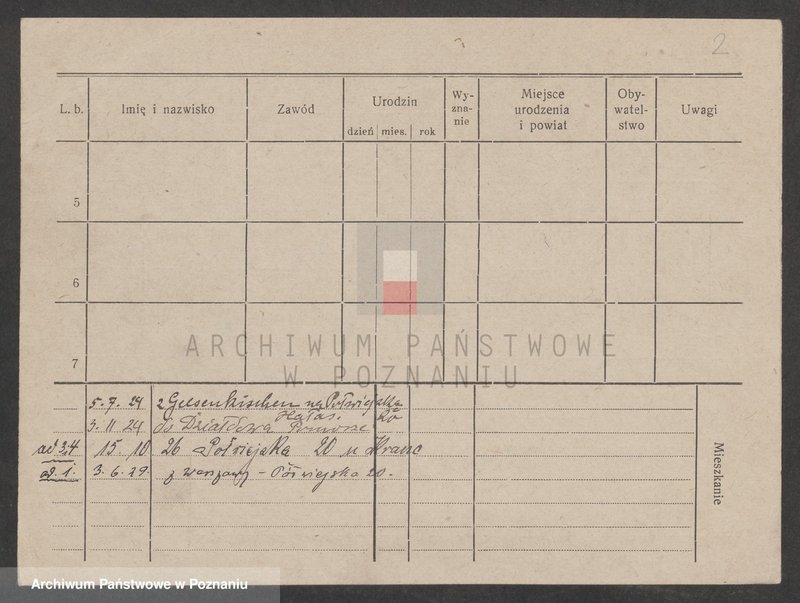 2
L. b. Imię i nazwisko Zawód Urodzin dzień mies. rok Wy-zna-nie Miejsce urodzenia i powiat Oby-watel-stwo Uwagi
5
6
7
ARCHIWUM PAŃSTWOWE
W POZNANIU
5.7.24 z Gelsenkirchen na Półwiejska 20
Hałas.
3.11.24 do Działdowa Pomorze
ad 3.4 15.10 26 Półwiejska 20 u
od. 1. 3.6.29 z Warszawy – Półwiejska 20.
Mieszkanie
Archiwum Państwowe w Poznaniu